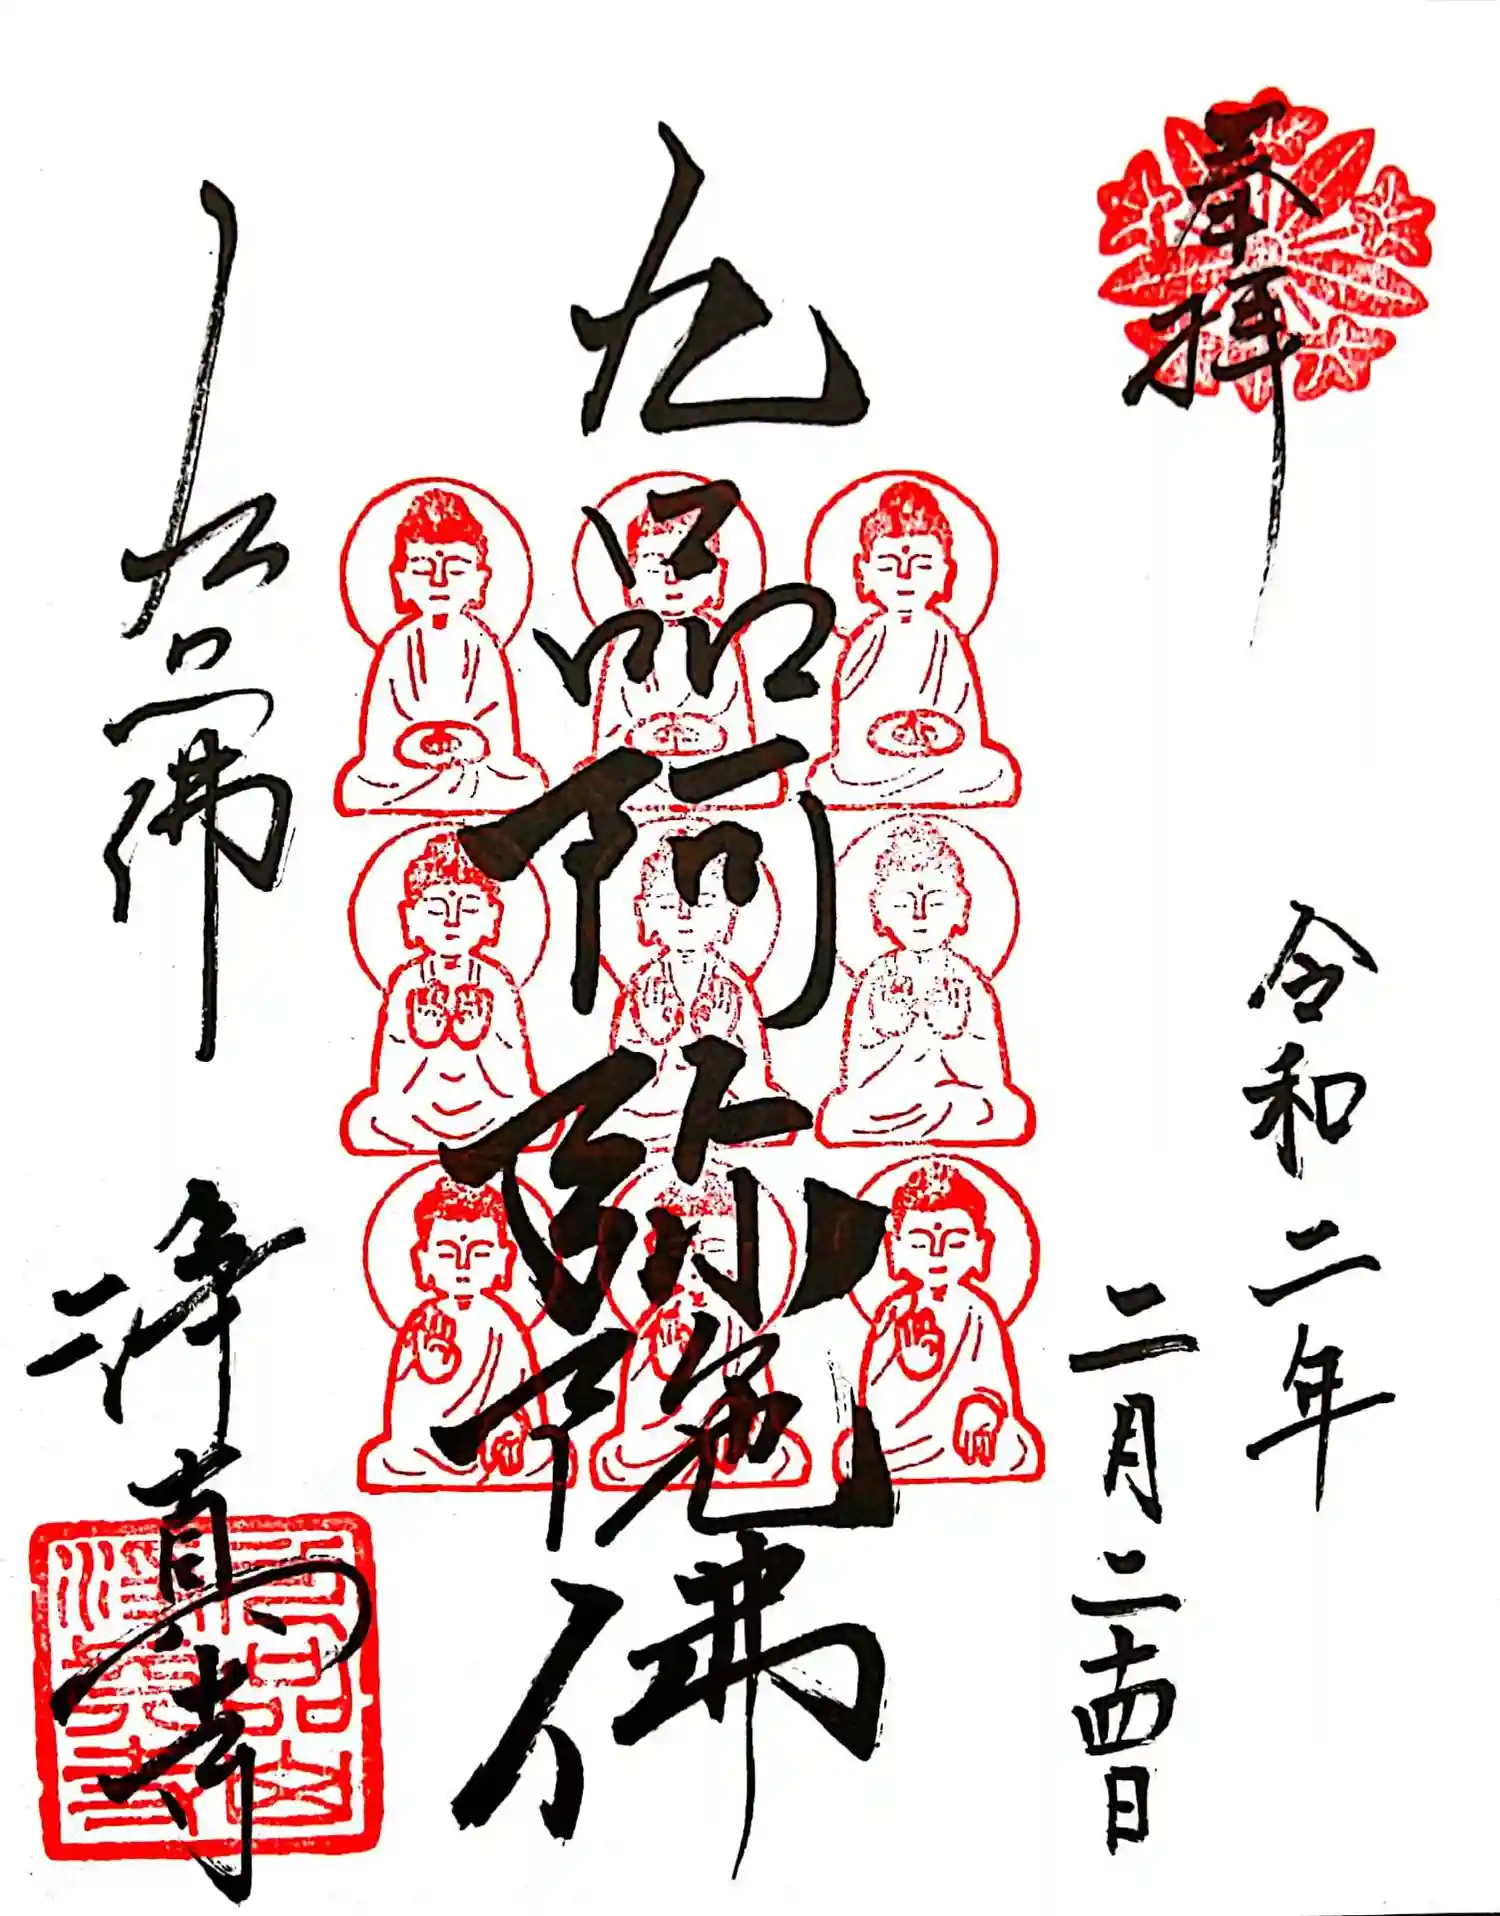 奉拝
令和二年
二月二十四日
九品阿弥陀佛
九品佛
浄真寺
九品山
淨真寺